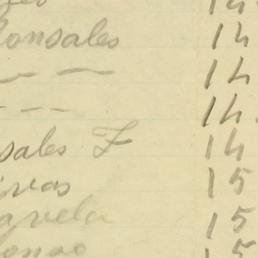 Gonsales 14
— — 14
- - - 14
sales F 14
ivas 15
avela 15
onso 15